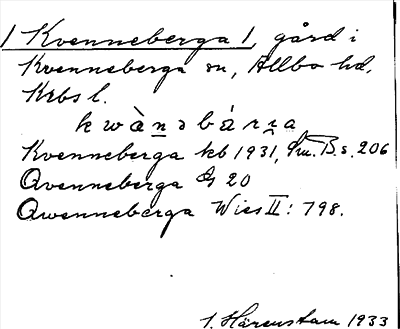 1 Kvenneberga 1, gård i
Kvenneberga sn, Allbo hd,
Krbs l.
k w à n ə b á r n a
Kvenneberga kb 1931, Sm. B. s. 206
Qvenneberga G 20
Qwenneberga Wies II: 798.
I. Härenstam 1933